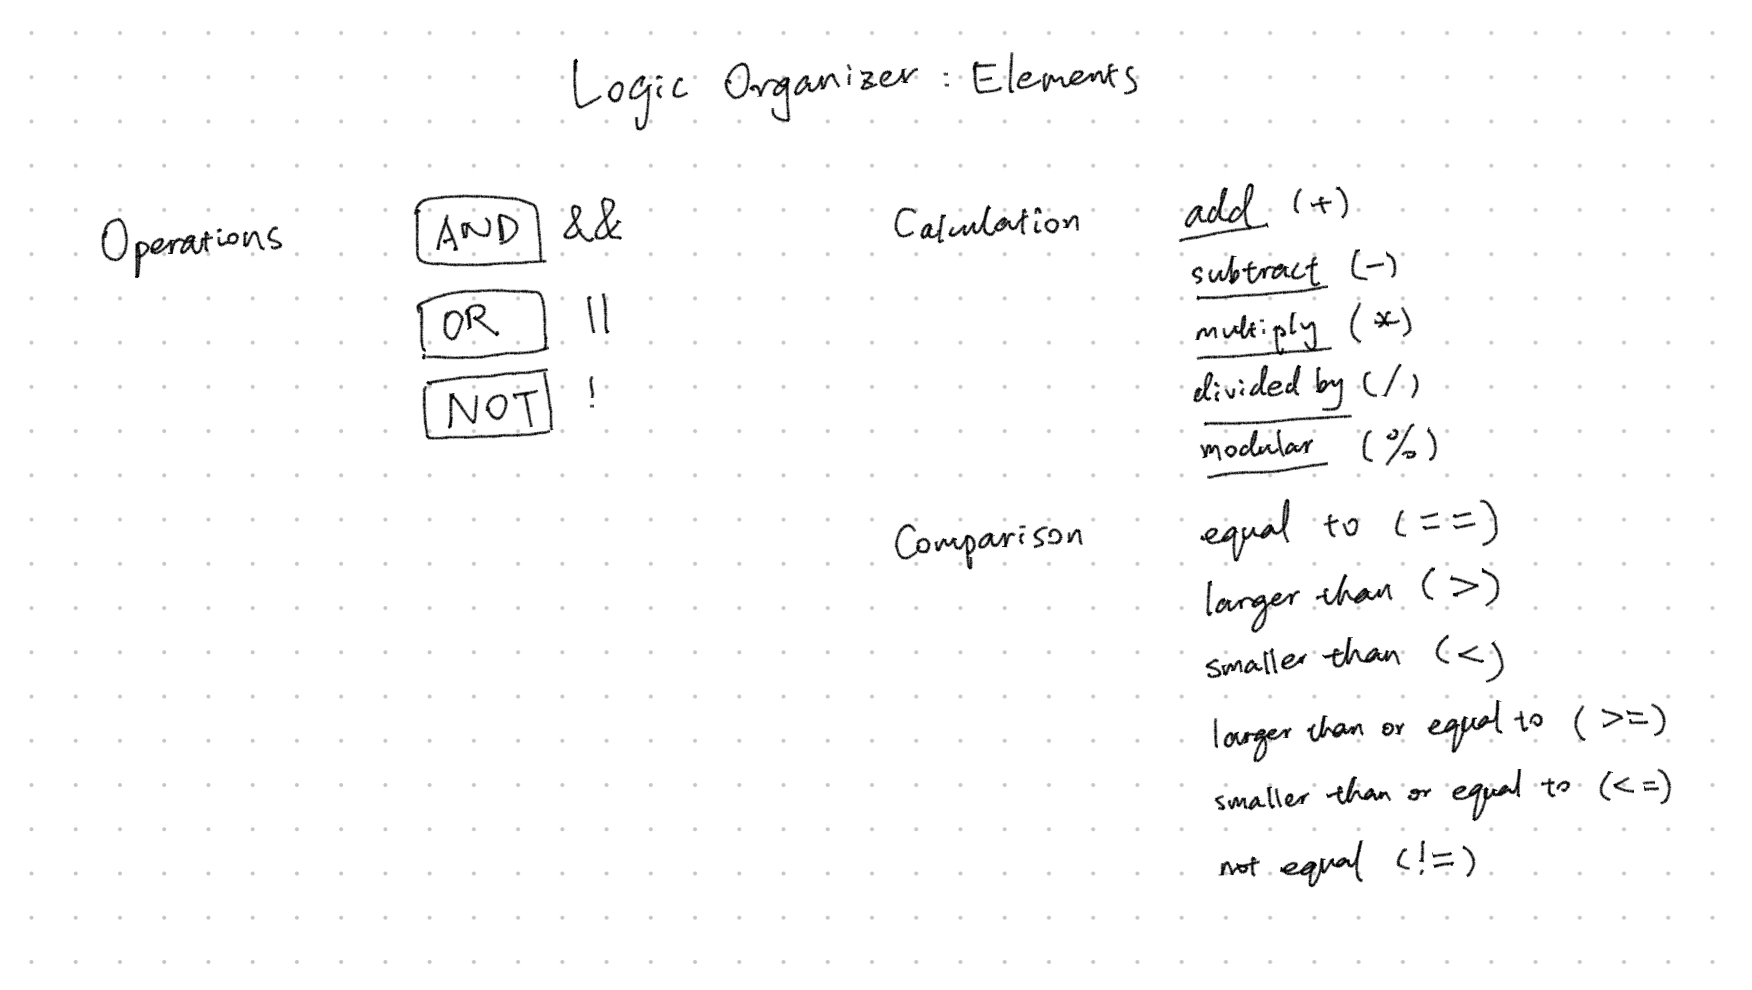 Logic Organizer : Elements
Operations
AND &&
OR ||
NOT !
Calculation
add (+)
subtract (-)
multiply (*)
divided by (/)
modular (%)
Comparison
equal to (==)
larger than (>)
smaller than (<)
larger than or equal to (>=)
smaller than or equal to (<=)
not equal (!=)